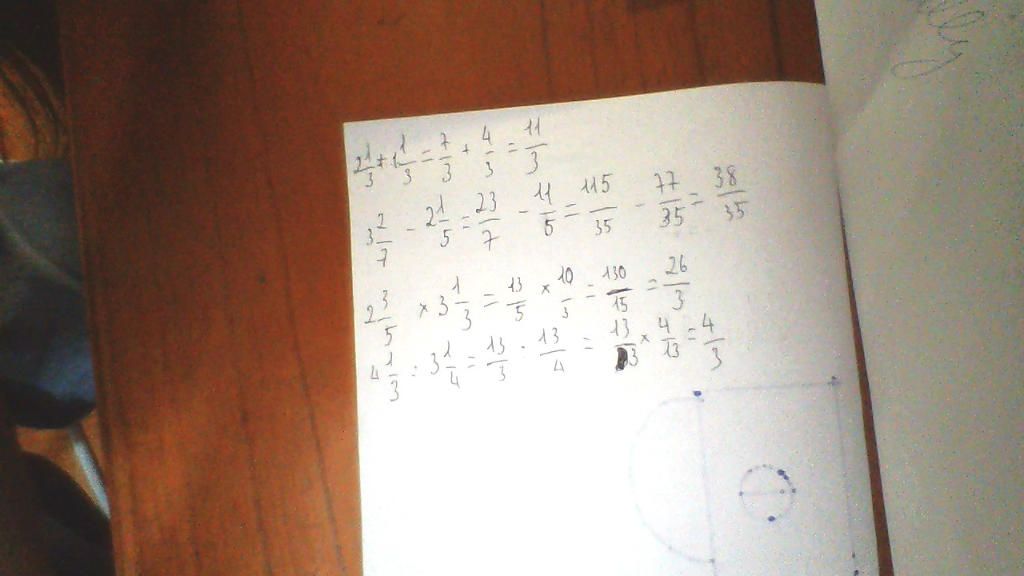 2 1/3 + 1 1/3 = 7/3 + 4/3 = 11/3
3 2/7 - 2 1/5 = 23/7 - 11/5 = 115/35 - 77/35 = 38/35
2 3/5 × 3 1/3 = 13/5 × 10/3 = 130/15 = 26/3
4 1/3 : 3 1/4 = 13/3 : 13/4 = 13/3 × 4/13 = 4/3